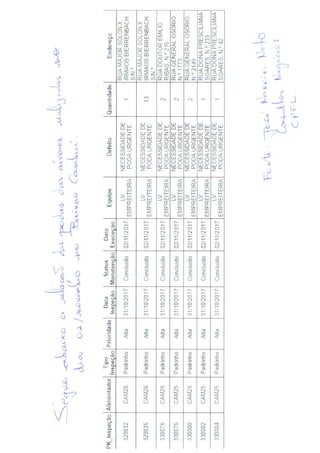 Segue abaixo a relação das podas das árvores realizadas no
dia 02/novembro no Bairro Cambuí
PK_Inspeção Alimentador Tipo Inspeção Prioridade Data Inspeção Status Manutenção Data Execução Equipe Defeito Quantidade Endereço
329832 CAM26 Padrinho Alta 31/10/2017 Concluído 02/11/2017 LV EMPREITEIRA NECESSIDADE DE PODA URGENTE 1 RUA MAJOR SOLON X IRMAOS BIERRENBACH S/N.º
329835 CAM26 Padrinho Alta 31/10/2017 Concluído 02/11/2017 LV EMPREITEIRA NECESSIDADE DE PODA URGENTE 13 RUA MAJOR SOLON X IRMAOS BIERRENBACH S/N.º
330075 CAM25 Padrinho Alta 31/10/2017 Concluído 02/11/2017 LV EMPREITEIRA NECESSIDADE DE PODA URGENTE 2 RUA DOUTOR EMILIO RIBAS, N.º 776
330076 CAM25 Padrinho Alta 31/10/2017 Concluído 02/11/2017 LV EMPREITEIRA NECESSIDADE DE PODA URGENTE 2 RUA GENERAL OSORIO N.º 1773
330080 CAM25 Padrinho Alta 31/10/2017 Concluído 02/11/2017 LV EMPREITEIRA NECESSIDADE DE PODA URGENTE 2 RUA GENERAL OSORIO N.º
330082 CAM25 Padrinho Alta 31/10/2017 Concluído 02/11/2017 LV EMPREITEIRA NECESSIDADE DE PODA URGENTE 1 RUA DONA PRESCILIANA SOARES, N.º
330084 CAM25 Padrinho Alta 31/10/2017 Concluído 02/11/2017 LV EMPREITEIRA NECESSIDADE DE PODA URGENTE 1 RUA DONA PRESCILIANA SOARES, N.º 42
Fonte José Neto
Consultor Negócios
CPFL